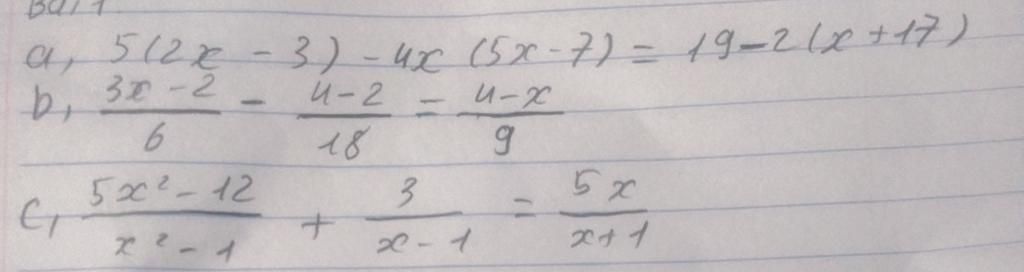 Bài 1
a, 5(2x - 3) - 4x(5x - 7) = 19 - 2(x + 17)
b, (3x - 2)/6 - (4 - 2)/18 = (4 - x)/9
c, (5x² - 12)/(x² - 1) + 3/(x - 1) = 5x/(x + 1)